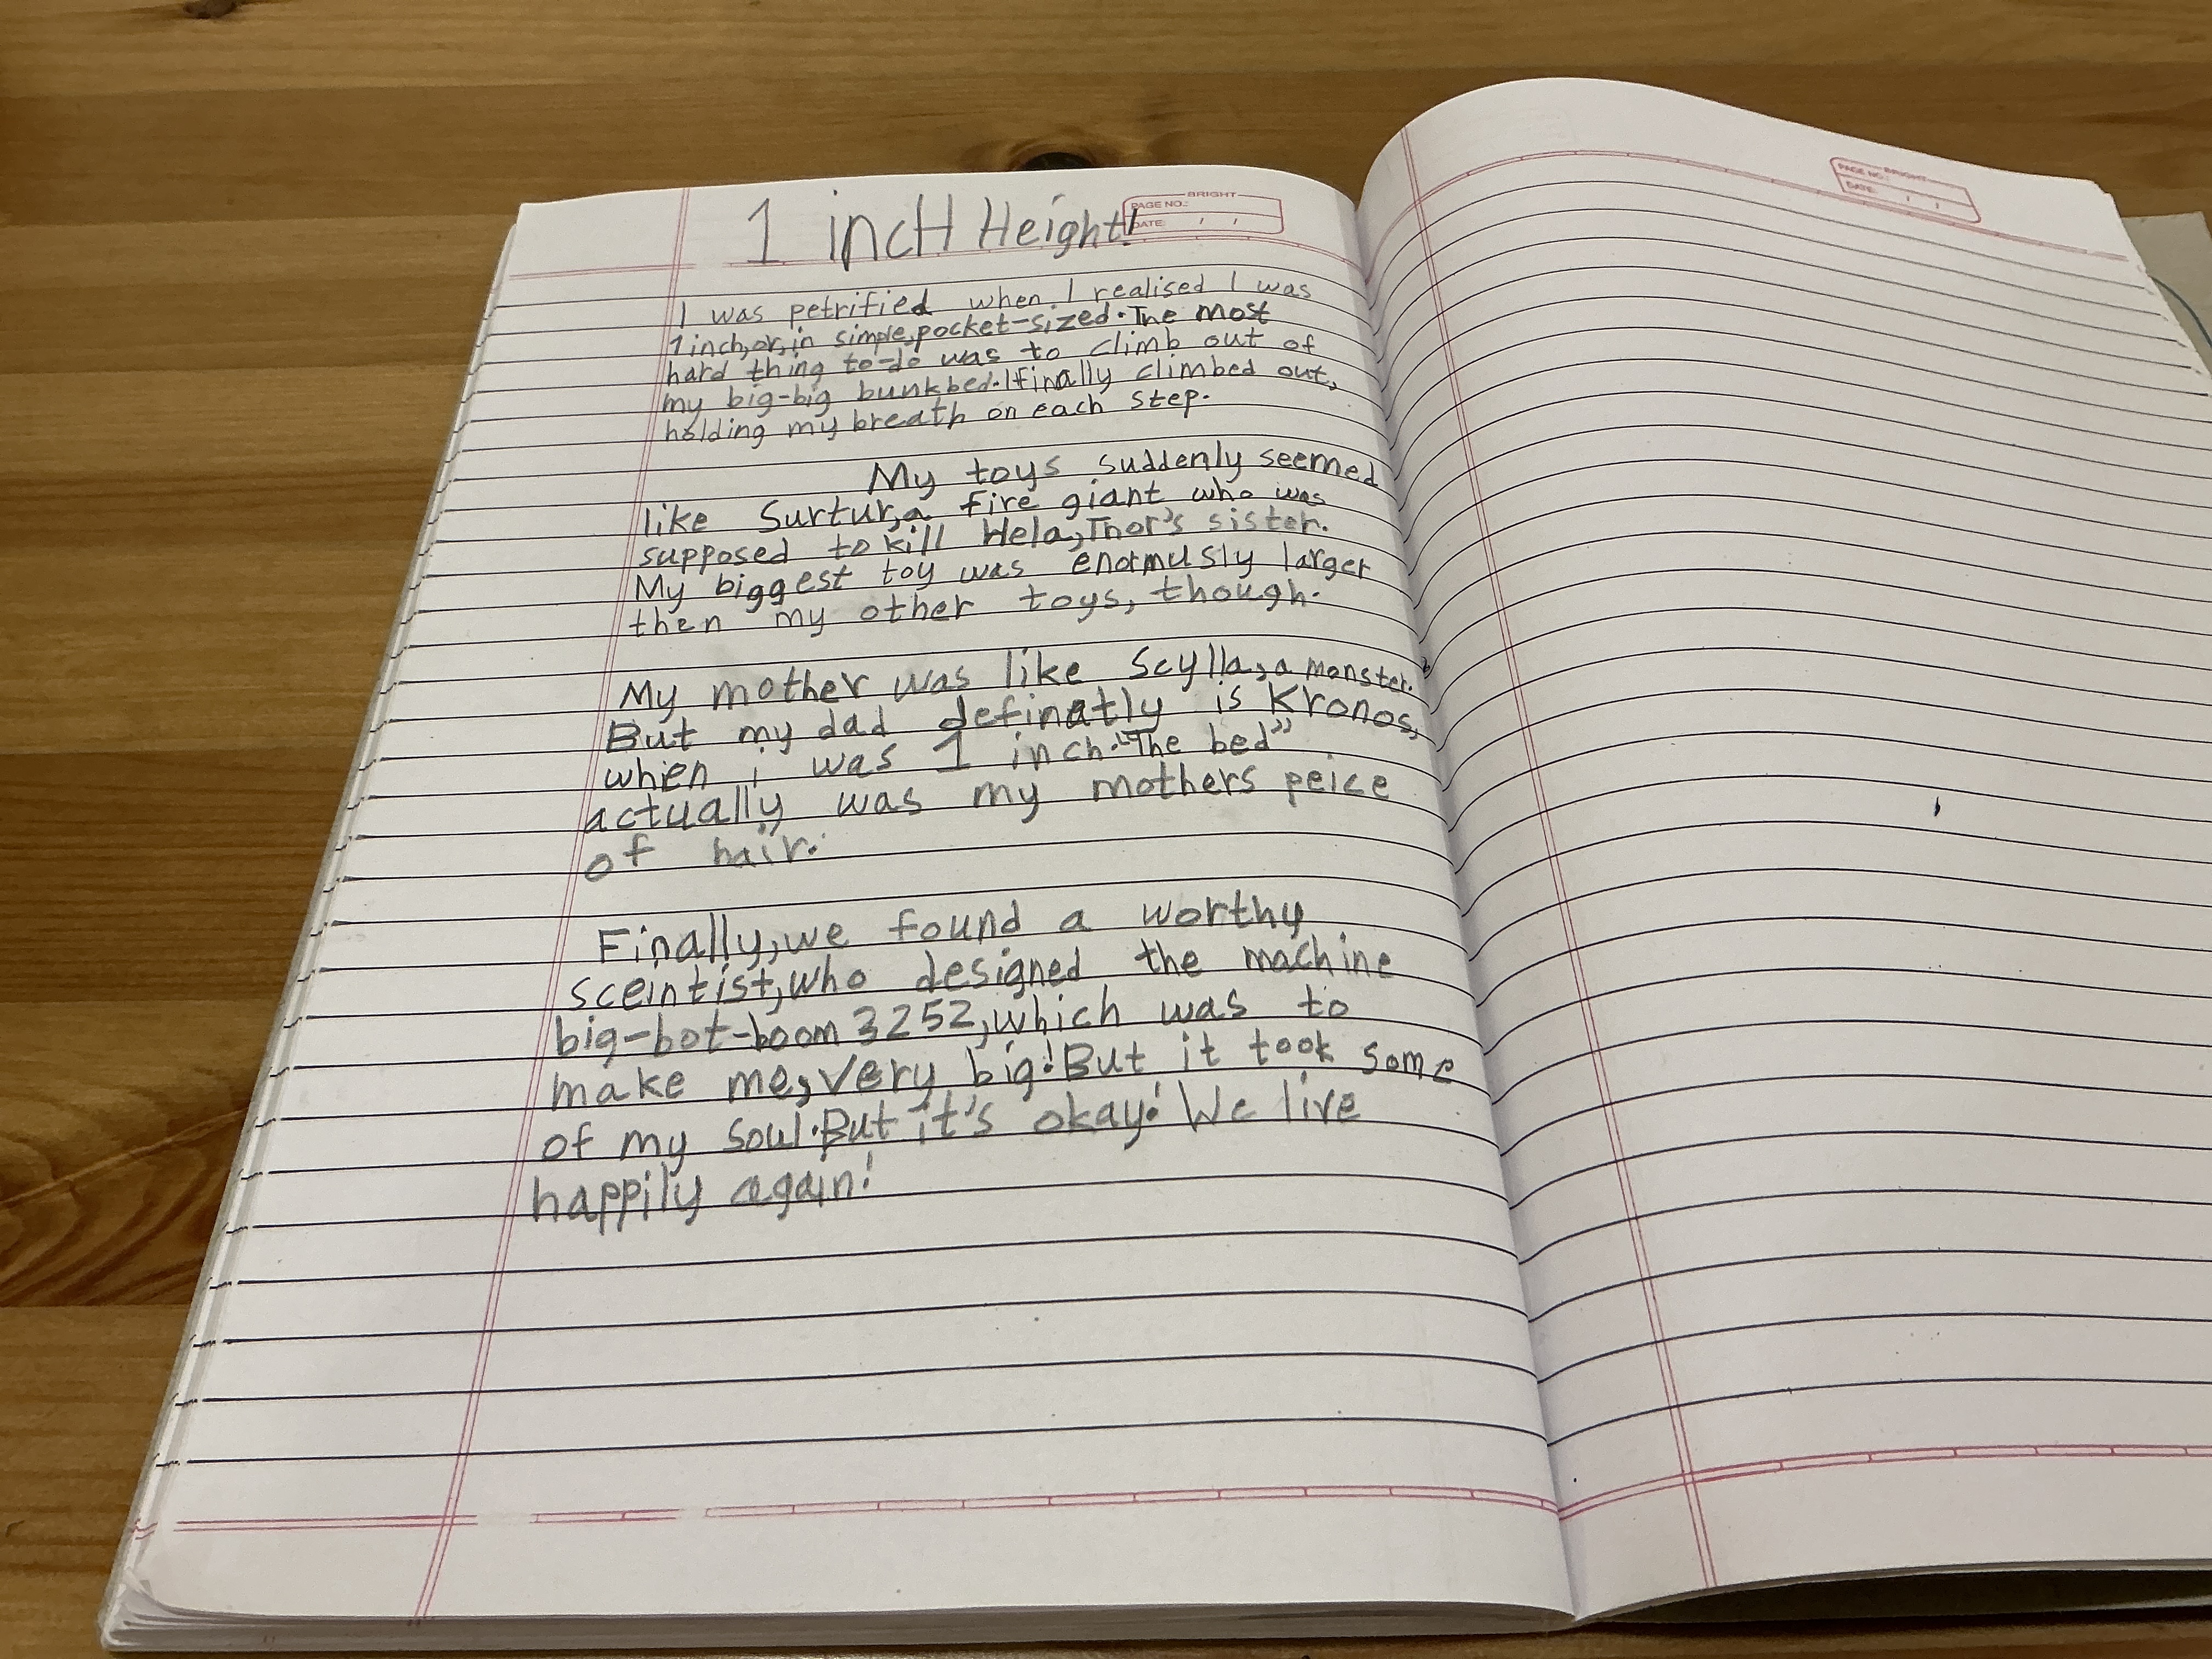 1 incH Height!
BRIGHT
PAGE NO.:
DATE: / /
I was petrified when I realised I was
1 inch,or,in simple,pocket-sized. The most
hard thing to-do was to climb out of
my big-big bunkbed. I finally climbed out,
holding my breath on each step.
My toys suddenly seemed
like Surtur,a fire giant who was
supposed to kill Hela,Thor's sister.
My biggest toy was enormusly larger
then my other toys, though.
My mother was like Scylla,a monster.
But my dad definatly is Kronos,
when i was 1 inch."The bed"
actually was my mothers peice
of hair.
Finally,we found a worthy
sceintist,who designed the machine
big-bot-boom 3252,which was to
make me,very big! But it took some
of my soul. But it's okay! We live
happily again!
BRIGHT
PAGE NO.:
DATE: / /